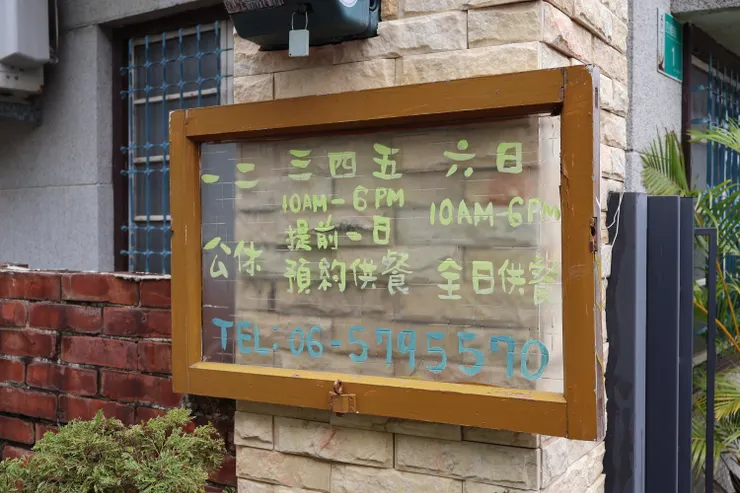 一二 三四五 六日
10AM-6PM 10AM-6PM
提前一日
公休 預約供餐 全日供餐
TEL:06-5795570